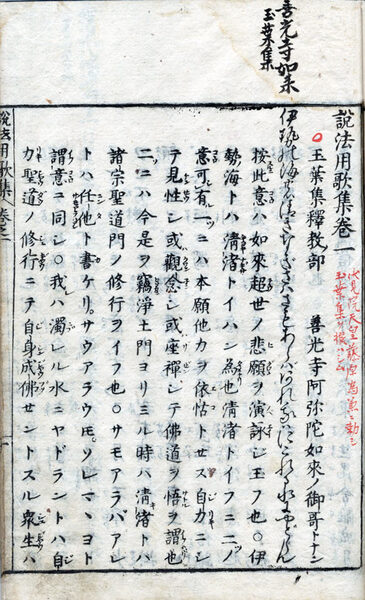 善光寺如来
玉葉集
説法用歌集巻一
伏見院天皇藤原為兼ニ勅シ
玉葉集ヲ撰ハシム
○玉葉集釋教部　善光寺阿弥陀如来ノ御哥トナン
伊勢の海のきよきなぎさはさもあらばあれわれはにごれる水にやどらん
按此意ハ如来超世ノ悲願ヲ演詠シ玉フ也○伊
勢海トハ清渚トイハン為也清渚トイフニ二ノ
意可有一ニハ本願他力ヲ依怙トセス自力ニシ
テ見性シ或觀念シ或座禪シテ佛道ヲ悟ヲ謂也
二ニハ今是ヲ竊浄土門ヨリミル時ハ清渚トハ
諸宗聖道門ノ修行ヲイフ也○サモアラバアレ
トハ任他ト書ケリサウアラウ𪜈ソレマヽヨト
謂意ニ同シ○我ハ濁レル水ニヤドラントハ自
力聖道ノ修行ニテ自身成佛セントスル衆生ハ
説法用歌集巻之一